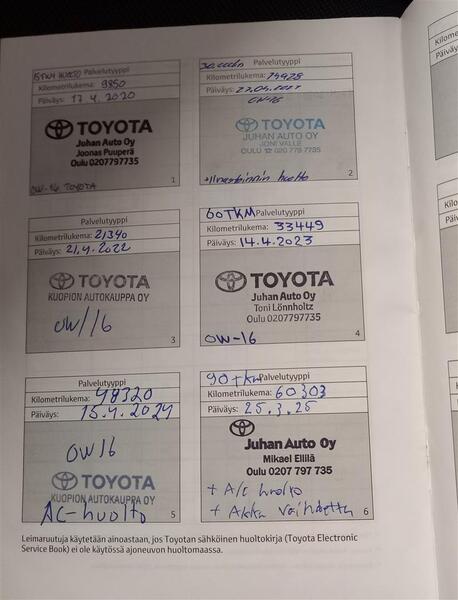 15TKM HUOLTO Palvelutyyppi
Kilometrilukema: 9850
Päiväys: 17 4. 2020
TOYOTA
Juhan Auto Oy
Joonas Puuperä
Oulu 0207797735
OW-16 TOYOTA
1
Palvelutyyppi
Kilometrilukema:
Päiväys:
OW-16
TOYOTA
JUHAN AUTO OY
JONI VALLE
OULU ☎ 020 779 7735
huolto
2
Palvelutyyppi
Kilometrilukema: 21340
Päiväys: 21.4.2022
TOYOTA
KUOPION AUTOKAUPPA OY
OW/16
3
60TKM Palvelutyyppi
Kilometrilukema: 33449
Päiväys: 14.4.2023
TOYOTA
Juhan Auto Oy
Toni Lönnholtz
Oulu 0207797735
OW-16
4
Palvelutyyppi
Kilometrilukema: 48320
Päiväys: 15.4.2024
OW16
TOYOTA
KUOPION AUTOKAUPPA OY
AC-huolto
5
90tkm Palvelutyyppi
Kilometrilukema: 60303
Päiväys: 25.3.25
Juhan Auto Oy
Mikael Ellilä
Oulu 0207 797 735
+ A/c huolto
+ Akku vaihdettu
6
Leimaruutuja käytetään ainoastaan, jos Toyotan sähköinen huoltokirja (Toyota Electronic
Service Book) ei ole käytössä ajoneuvon huoltomaassa.